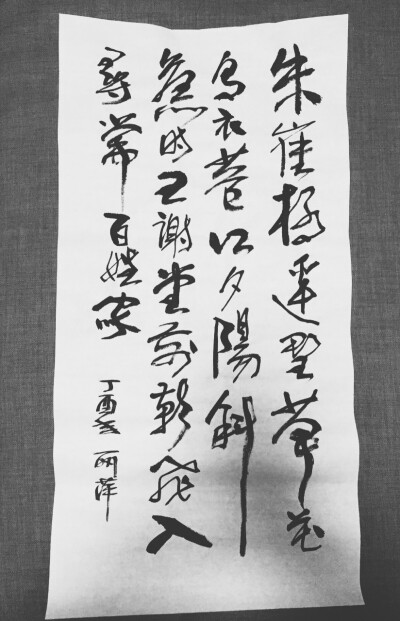 朱雀橋邊野草花
烏衣巷口夕陽斜
舊時王謝堂前燕飛入
尋常百姓家
丁酉 丽萍